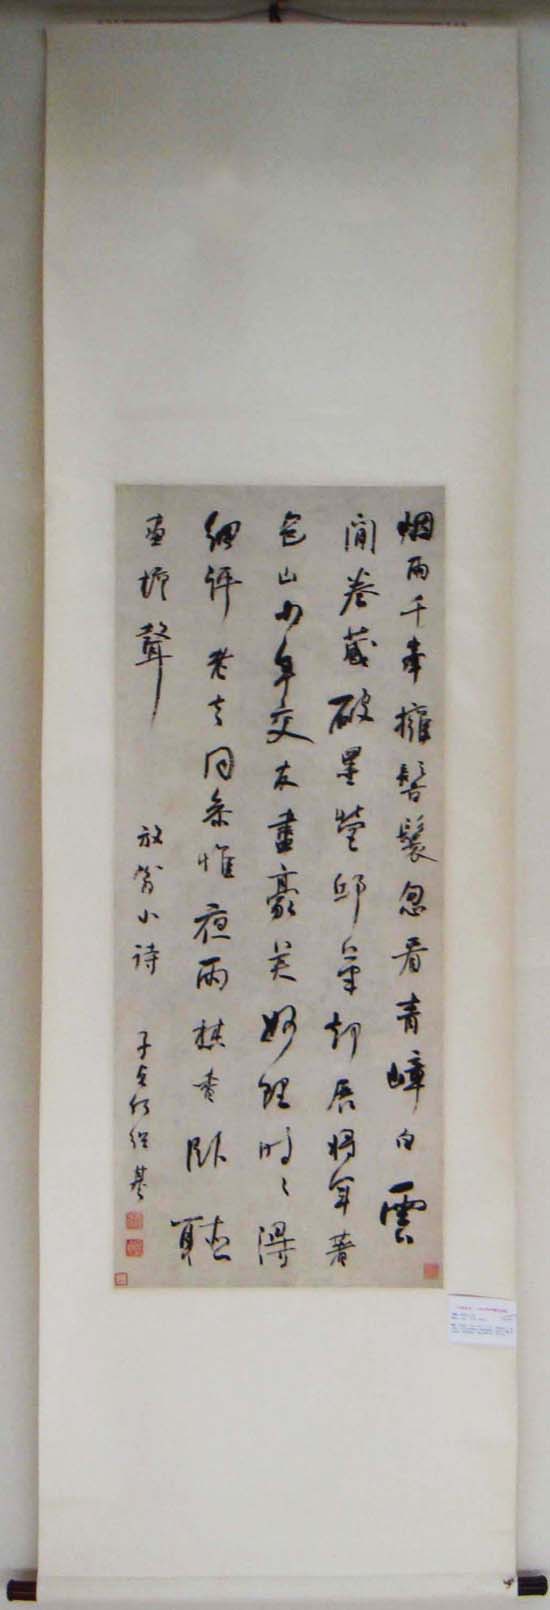 烟雨千峯擁髻鬟忽看青嶂白雲
間卷藏破墨營邱筆却展將軍著
色山少年交友盡豪英妙理時時得
細評老去同參惟夜雨焚香臥聽
畫檐聲
放翁小詩
子貞何紹基